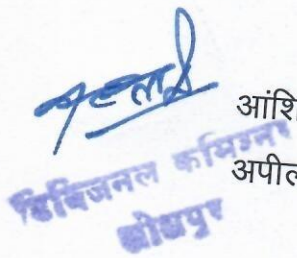 आंशि
अपील
डिविजनल कमिश्नर
जोधपुर